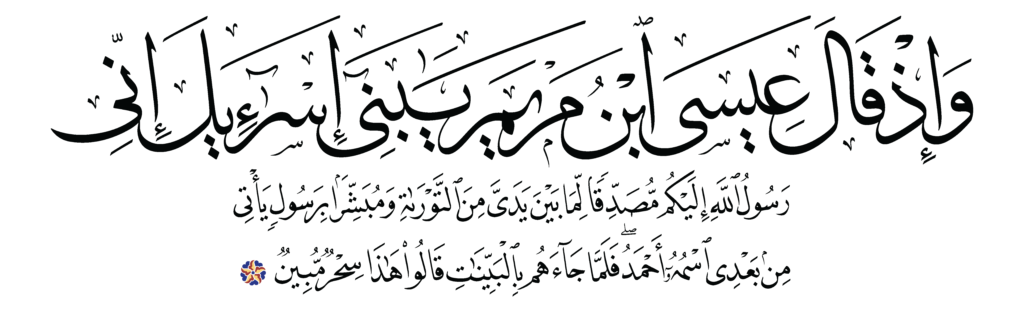 وَإِذْ قَالَ عِيسَى ٱبْنُ مَرْيَمَ يَـٰبَنِىٓ إِسْرَٰٓءِيلَ إِنِّى
رَسُولُ ٱللَّهِ إِلَيْكُم مُّصَدِّقًا لِّمَا بَيْنَ يَدَىَّ مِنَ ٱلتَّوْرَىٰةِ وَمُبَشِّرًۢا بِرَسُولٍ يَأْتِى
مِنۢ بَعْدِى ٱسْمُهُۥٓ أَحْمَدُ ۖ فَلَمَّا جَآءَهُم بِٱلْبَيِّنَـٰتِ قَالُوا۟ هَـٰذَا سِحْرٌ مُّبِينٌ